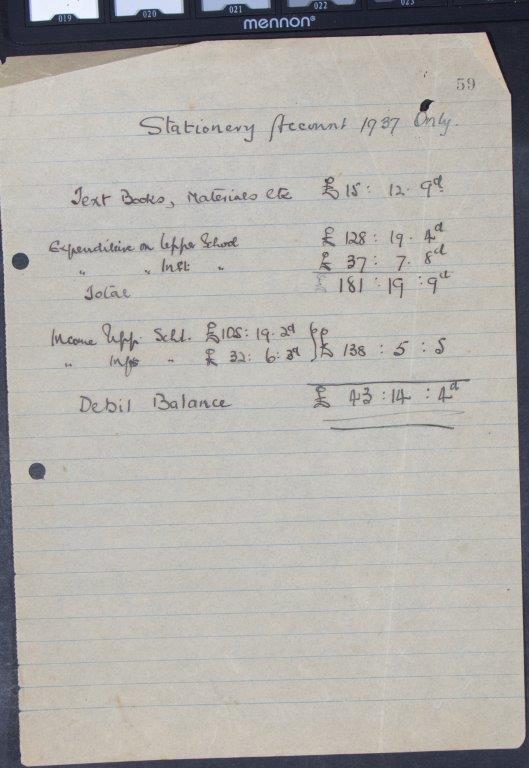 019 020 021 022 023
mennon®
59
Stationery Account 1937 Only.
Text Books, Materials etc £15 : 12 . 9d
Expenditure on Upper School £128 : 19 . 4d
" " Inft " £ 37 : 7 . 8d
Total £181 : 19 : 9d
Income Upp. Schl. £105 : 19 . 2d
" Infts " £ 32 : 6 : 3d } £138 : 5 : 5
Debit Balance £ 43 : 14 : 4d